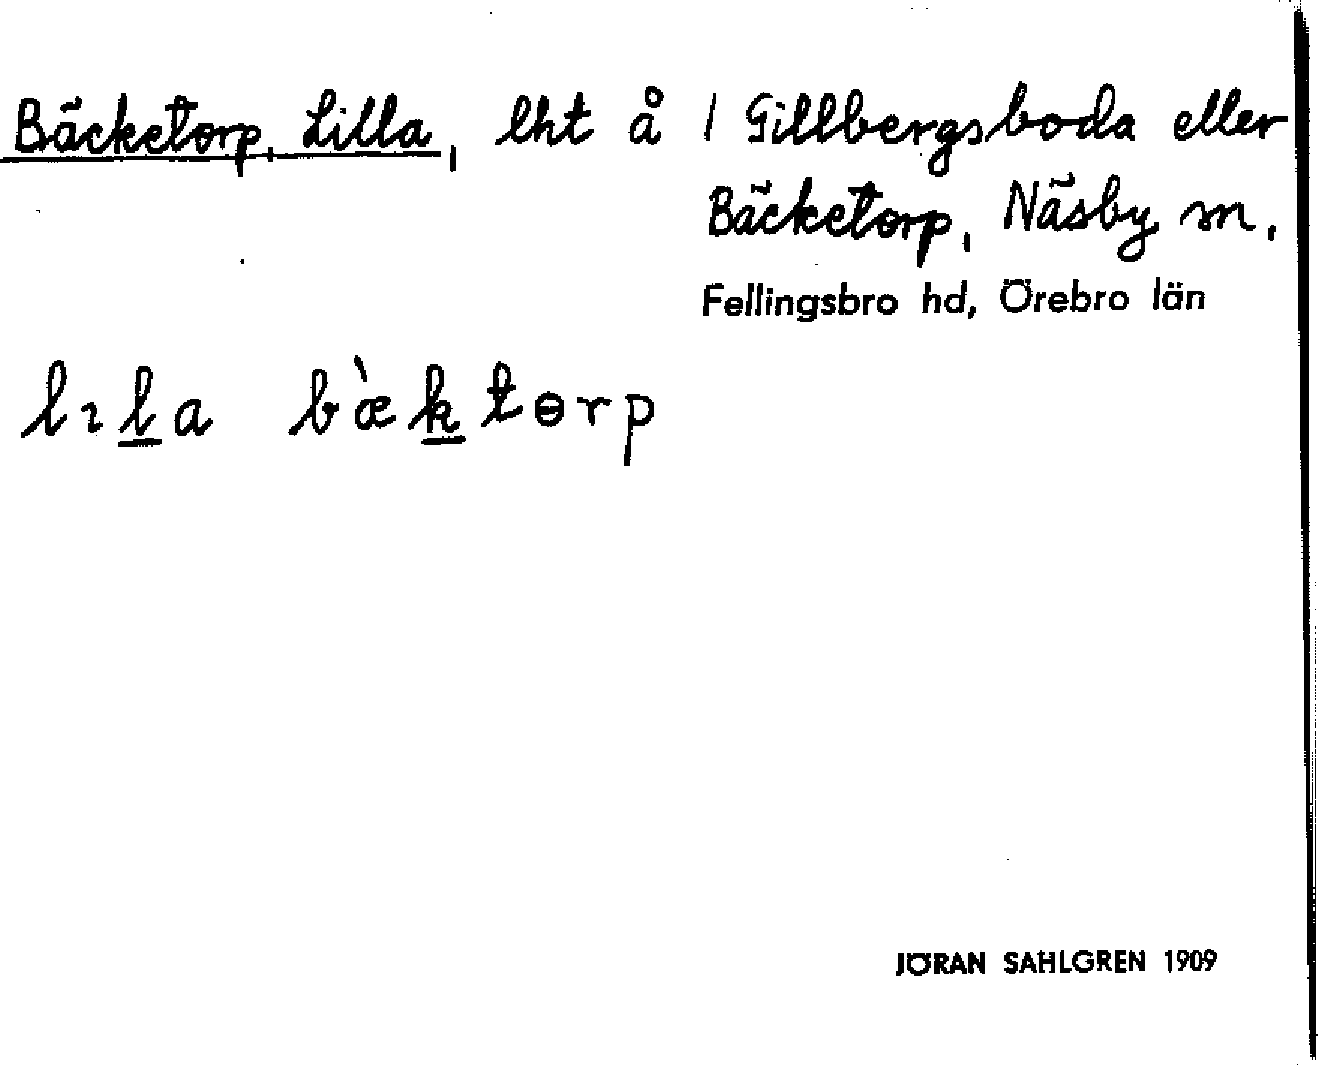 Bäcketorp, Lilla, lht å 1 Gillbergsboda eller
Bäcketorp, Näsby sn,
Fellingsbro hd, Örebro län
lıla bæ̀ktɵrp
JÖRAN SAHLGREN 1909